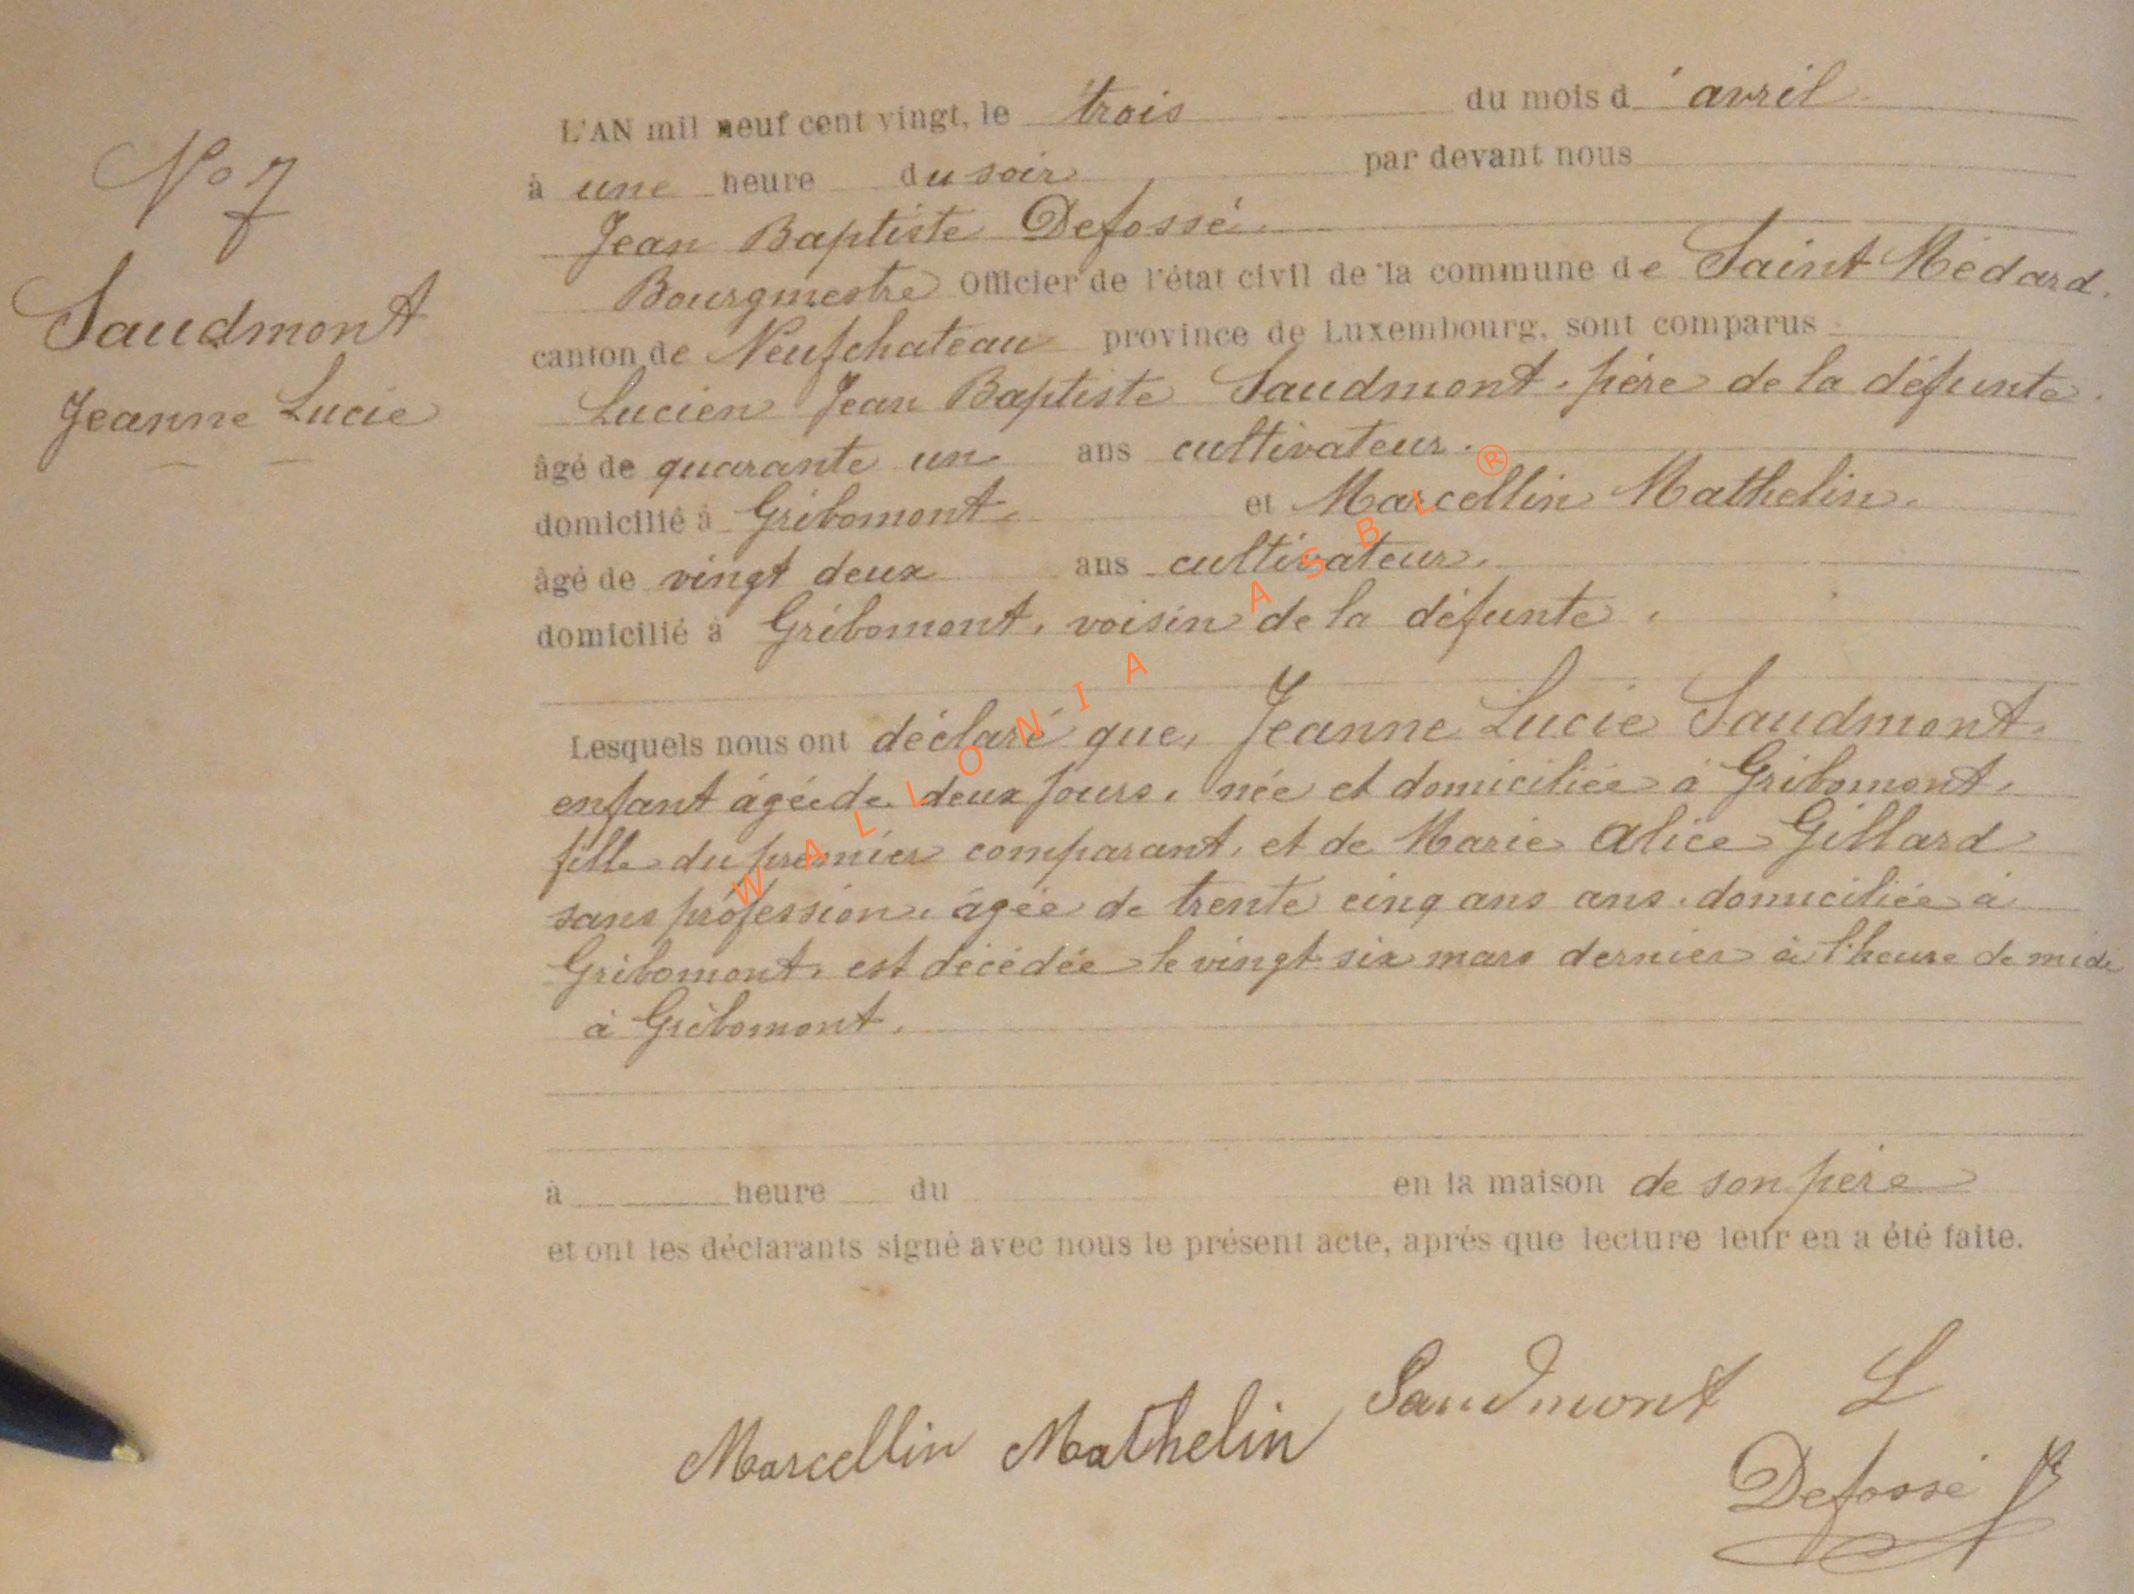 No 7
Saudmont
Jeanne Lucie
L'AN mil neuf cent vingt, le trois du mois d'avril
à une heure du soir par devant nous
Jean Baptiste Defossé.
Bourgmestre Officier de l'état civil de la commune de Saint Médard.
canton de Neufchateau province de Luxembourg, sont comparus
Lucien Jean Baptiste Saudmont, père de la défunte.
âgé de quarante un ans cultivateur.
domicilié à Gribomont, et Marcellin Mathelin.
âgé de vingt deux ans cultivateur.
domicilié à Gribomont, voisin de la défunte.
Lesquels nous ont déclaré que, Jeanne Lucie Saudmont.
enfant âgée de deux jours, née et domiciliée à Gribomont,
fille du premier comparant, et de Marie Alice Gillard
sans profession, âgée de trente cinq ans ans, domiciliée à
Gribomont, est décédée le vingt six mars dernier à l'heure de midi
à Gribomont.
à heure du en la maison de son père
et ont les déclarants signé avec nous le présent acte, après que lecture leur en a été faite.
Saudmont L
Marcellin Mathelin
Defossé JB
WALLONIA ASBL ®